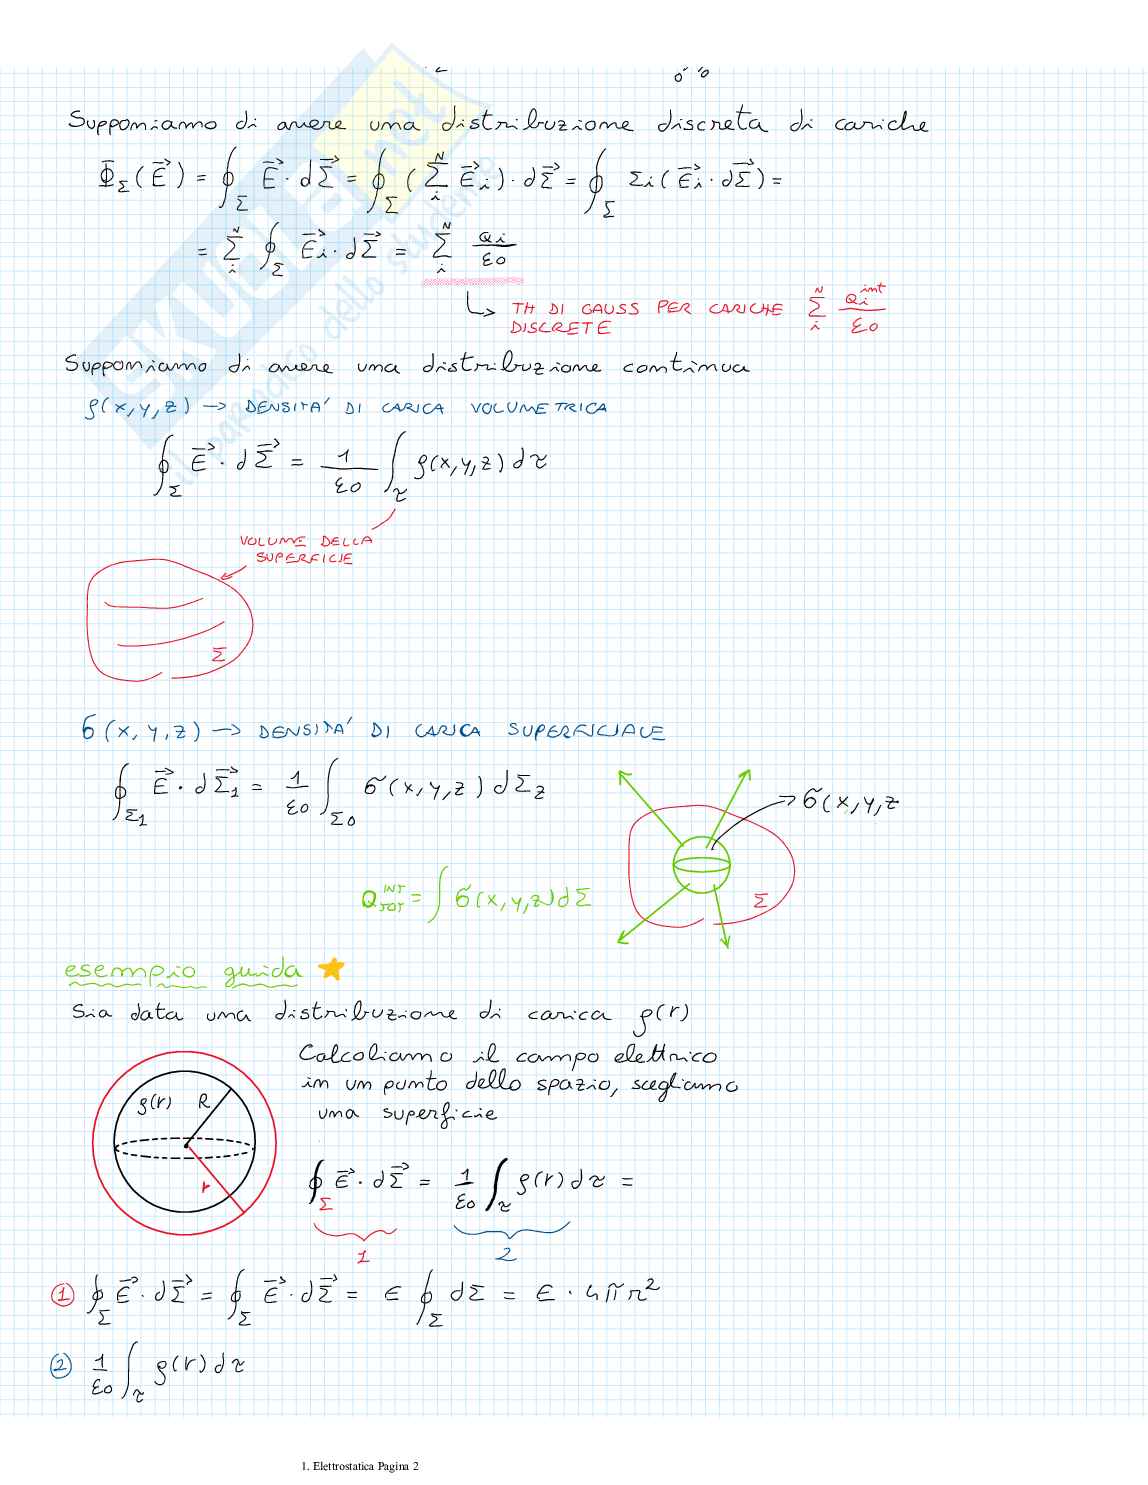 Supponiamo di avere una distribuzione discreta di cariche
Φ_Σ(E⃗) = ∮_Σ E⃗ · dΣ⃗ = ∮_Σ (Σ_i^N E⃗_i) · dΣ⃗ = ∮_Σ Σi(E⃗_i · dΣ⃗) =
= Σ_i^N ∮_Σ E⃗_i · dΣ⃗ = Σ_i^N Qi/ε0
↳ TH DI GAUSS PER CARICHE DISCRETE Σ_i^N Q_i^int/ε0
Supponiamo di avere una distribuzione continua
ρ(x,y,z) → DENSITA' DI CARICA VOLUMETRICA
∮_Σ E⃗ · dΣ⃗ = 1/ε0 ∫_τ ρ(x,y,z) dτ
VOLUME DELLA
SUPERFICIE
Σ
σ(x,y,z) → DENSITA' DI CARICA SUPERFICIALE
∮_Σ1 E⃗ · dΣ⃗_1 = 1/ε0 ∫_Σ0 σ(x,y,z) dΣ_2
→ σ(x,y,z
Σ
Q_TOT^INT = ∫ σ(x,y,z) dΣ
esempio guida
Sia data una distribuzione di carica ρ(r)
Calcoliamo il campo elettrico
in un punto dello spazio, scegliamo
una superficie
ρ(r) R
r
∮_Σ E⃗ · dΣ⃗ = 1/ε0 ∫_τ ρ(r) dτ =
1 2
① ∮_Σ E⃗ · dΣ⃗ = ∮_Σ E⃗ · dΣ⃗ = E ∮_Σ dΣ = E · 4πr²
② 1/ε0 ∫_τ ρ(r) dτ
1. Elettrostatica Pagina 2
SKUOLA.net
il paradiso dello studente